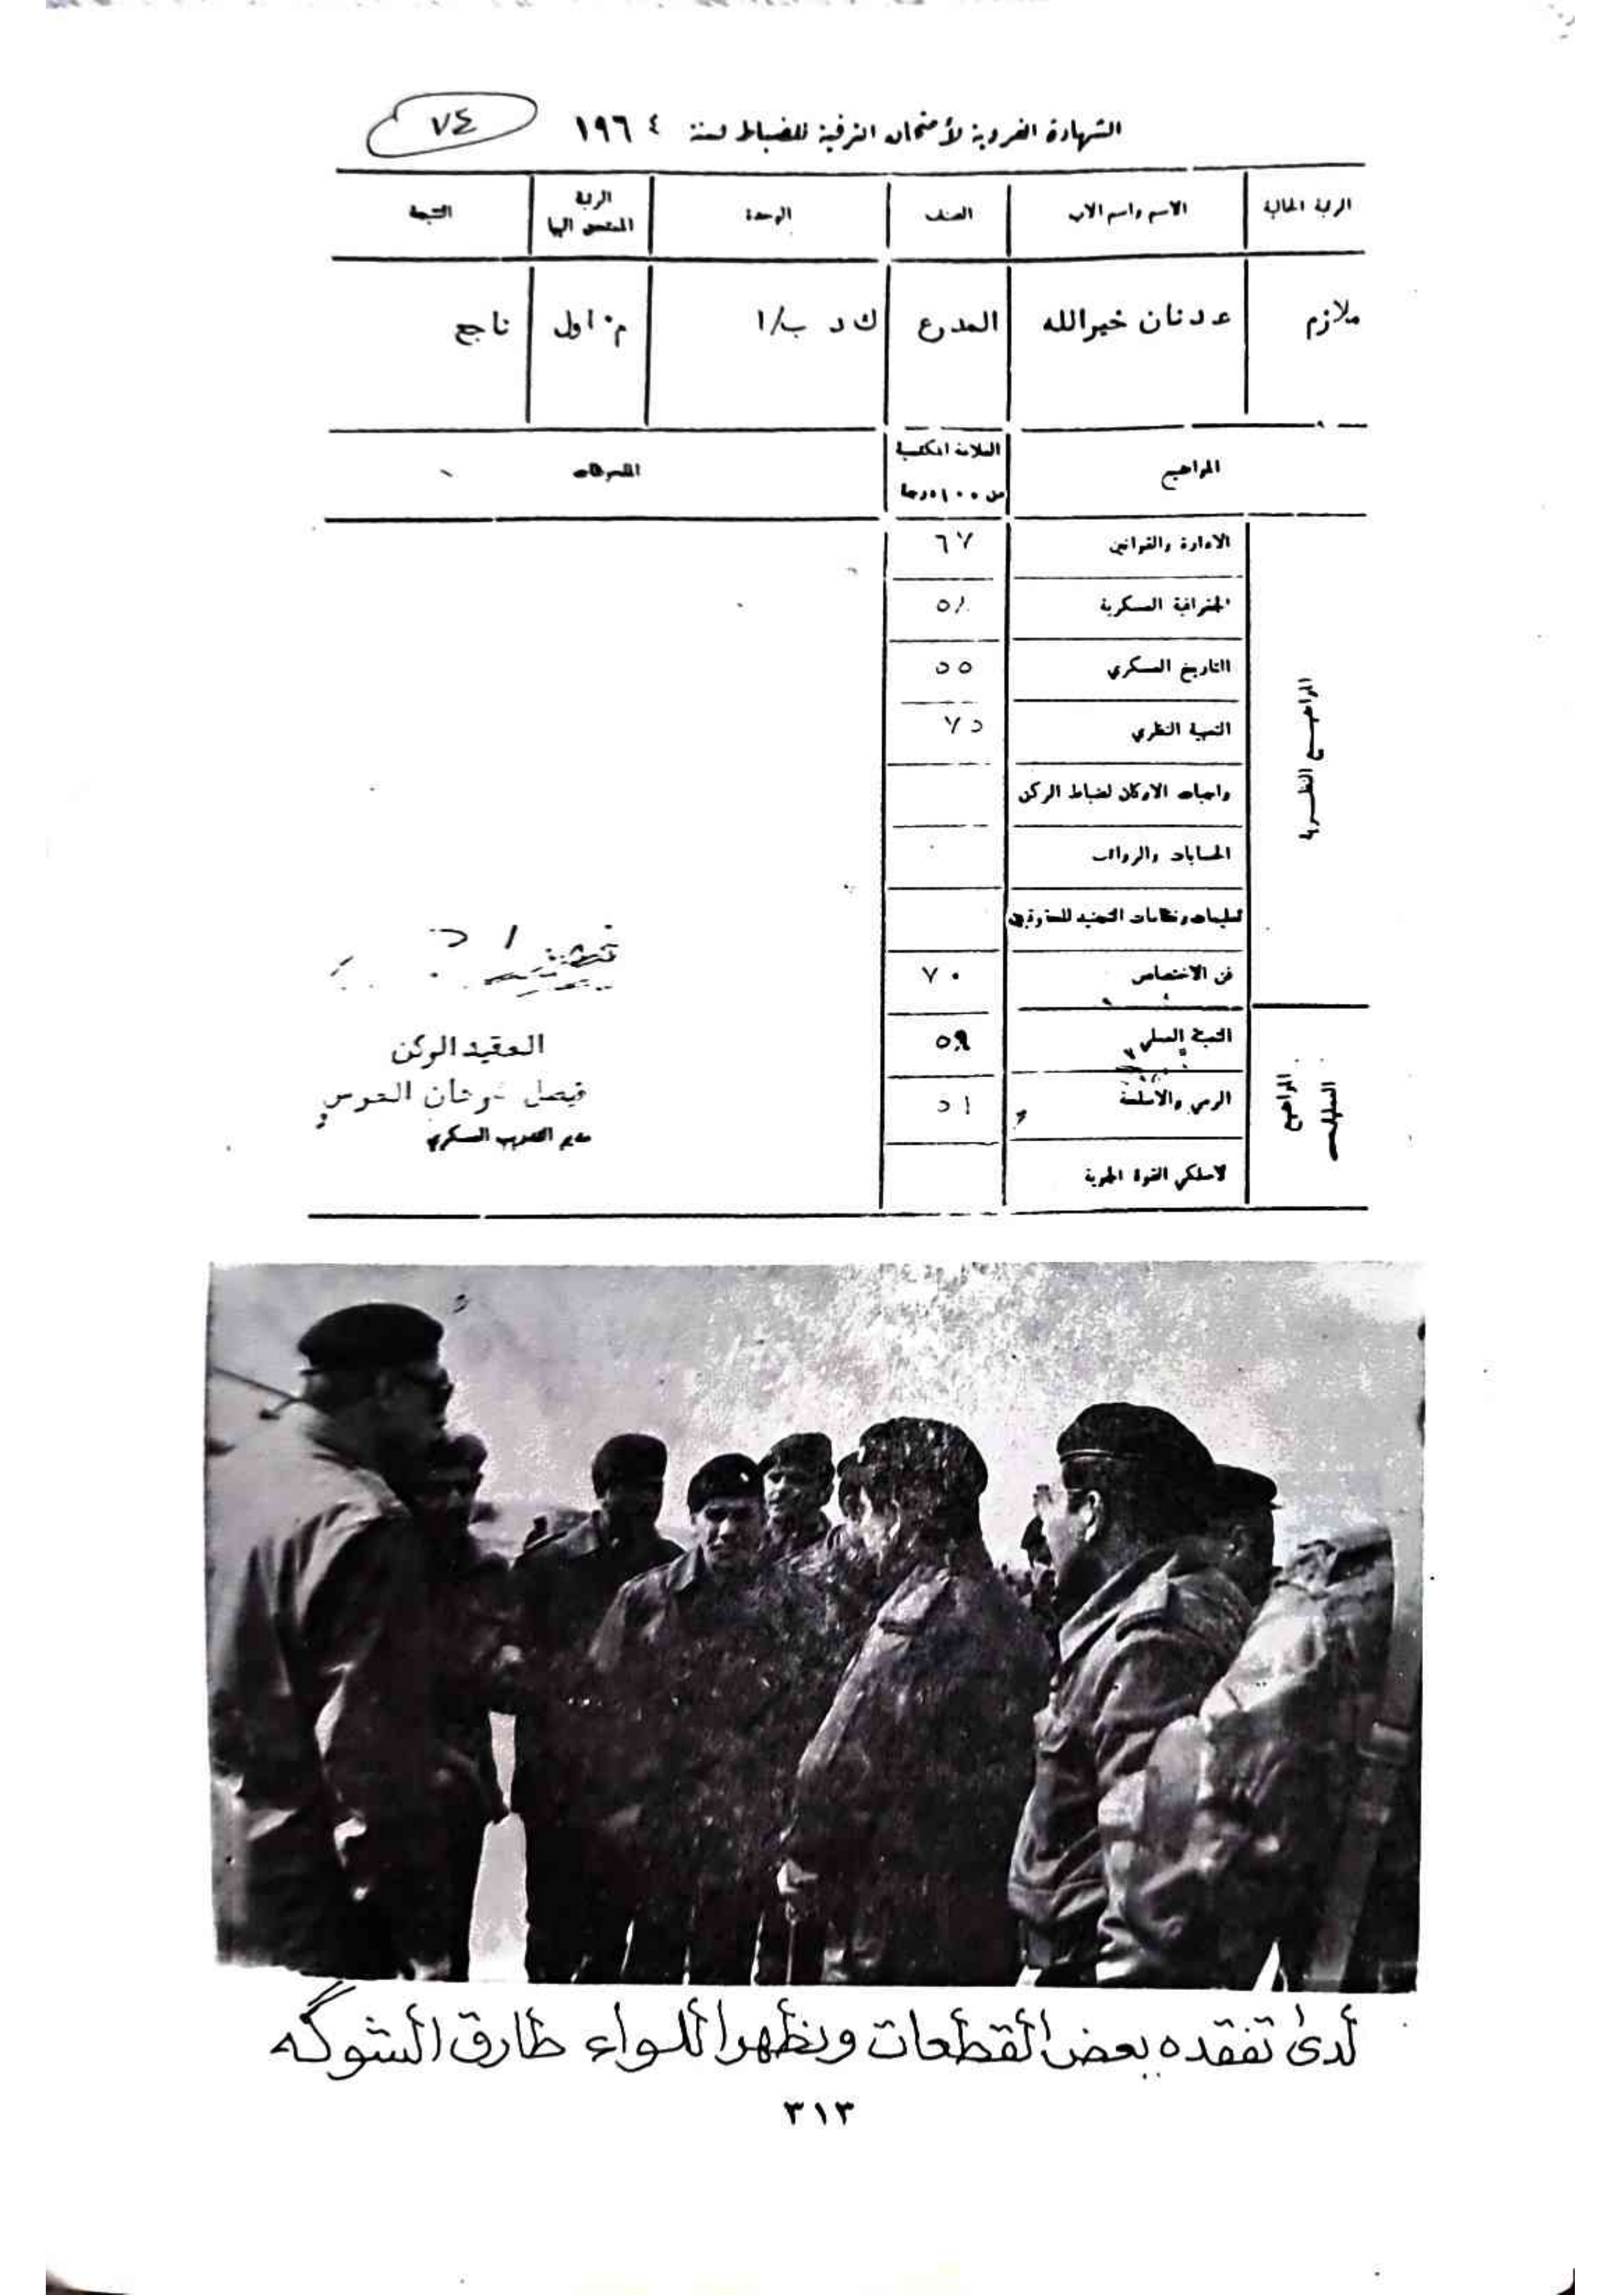 الشهادة الفردية لأمتحان الترفية للضباط لسنة ١٩٦٤
٧٤
الرتبة الحالية
الاسم واسم الاب
الصنف
الوحدة
الرتبة الممتحن اليها
النتيجة
ملازم
عدنان خيرالله
المدرع
ك د ب/١
م٠اول
ناجح
المواضيع
العلامة المكتسبة
من ١٠٠ درجة
المواضيع النظرية
الادارة والقوانين
٦٧
الجغرافية العسكرية
التاريخ العسكري
٥٥
التعبية النظري
٧٥
واجبات الاركان لضباط الركن
الحسابات والرواتب
فن الاختصاص
٧٠
المواضيع
التعبية العملي
الرمي والاسلحة
٥١
لاسلكي القوة الجوية
العقيد الركن
فيصل
مدير التدريب العسكري
لدى تفقده بعض القطعات ويظهر اللواء طارق الشوگه
٣١٣